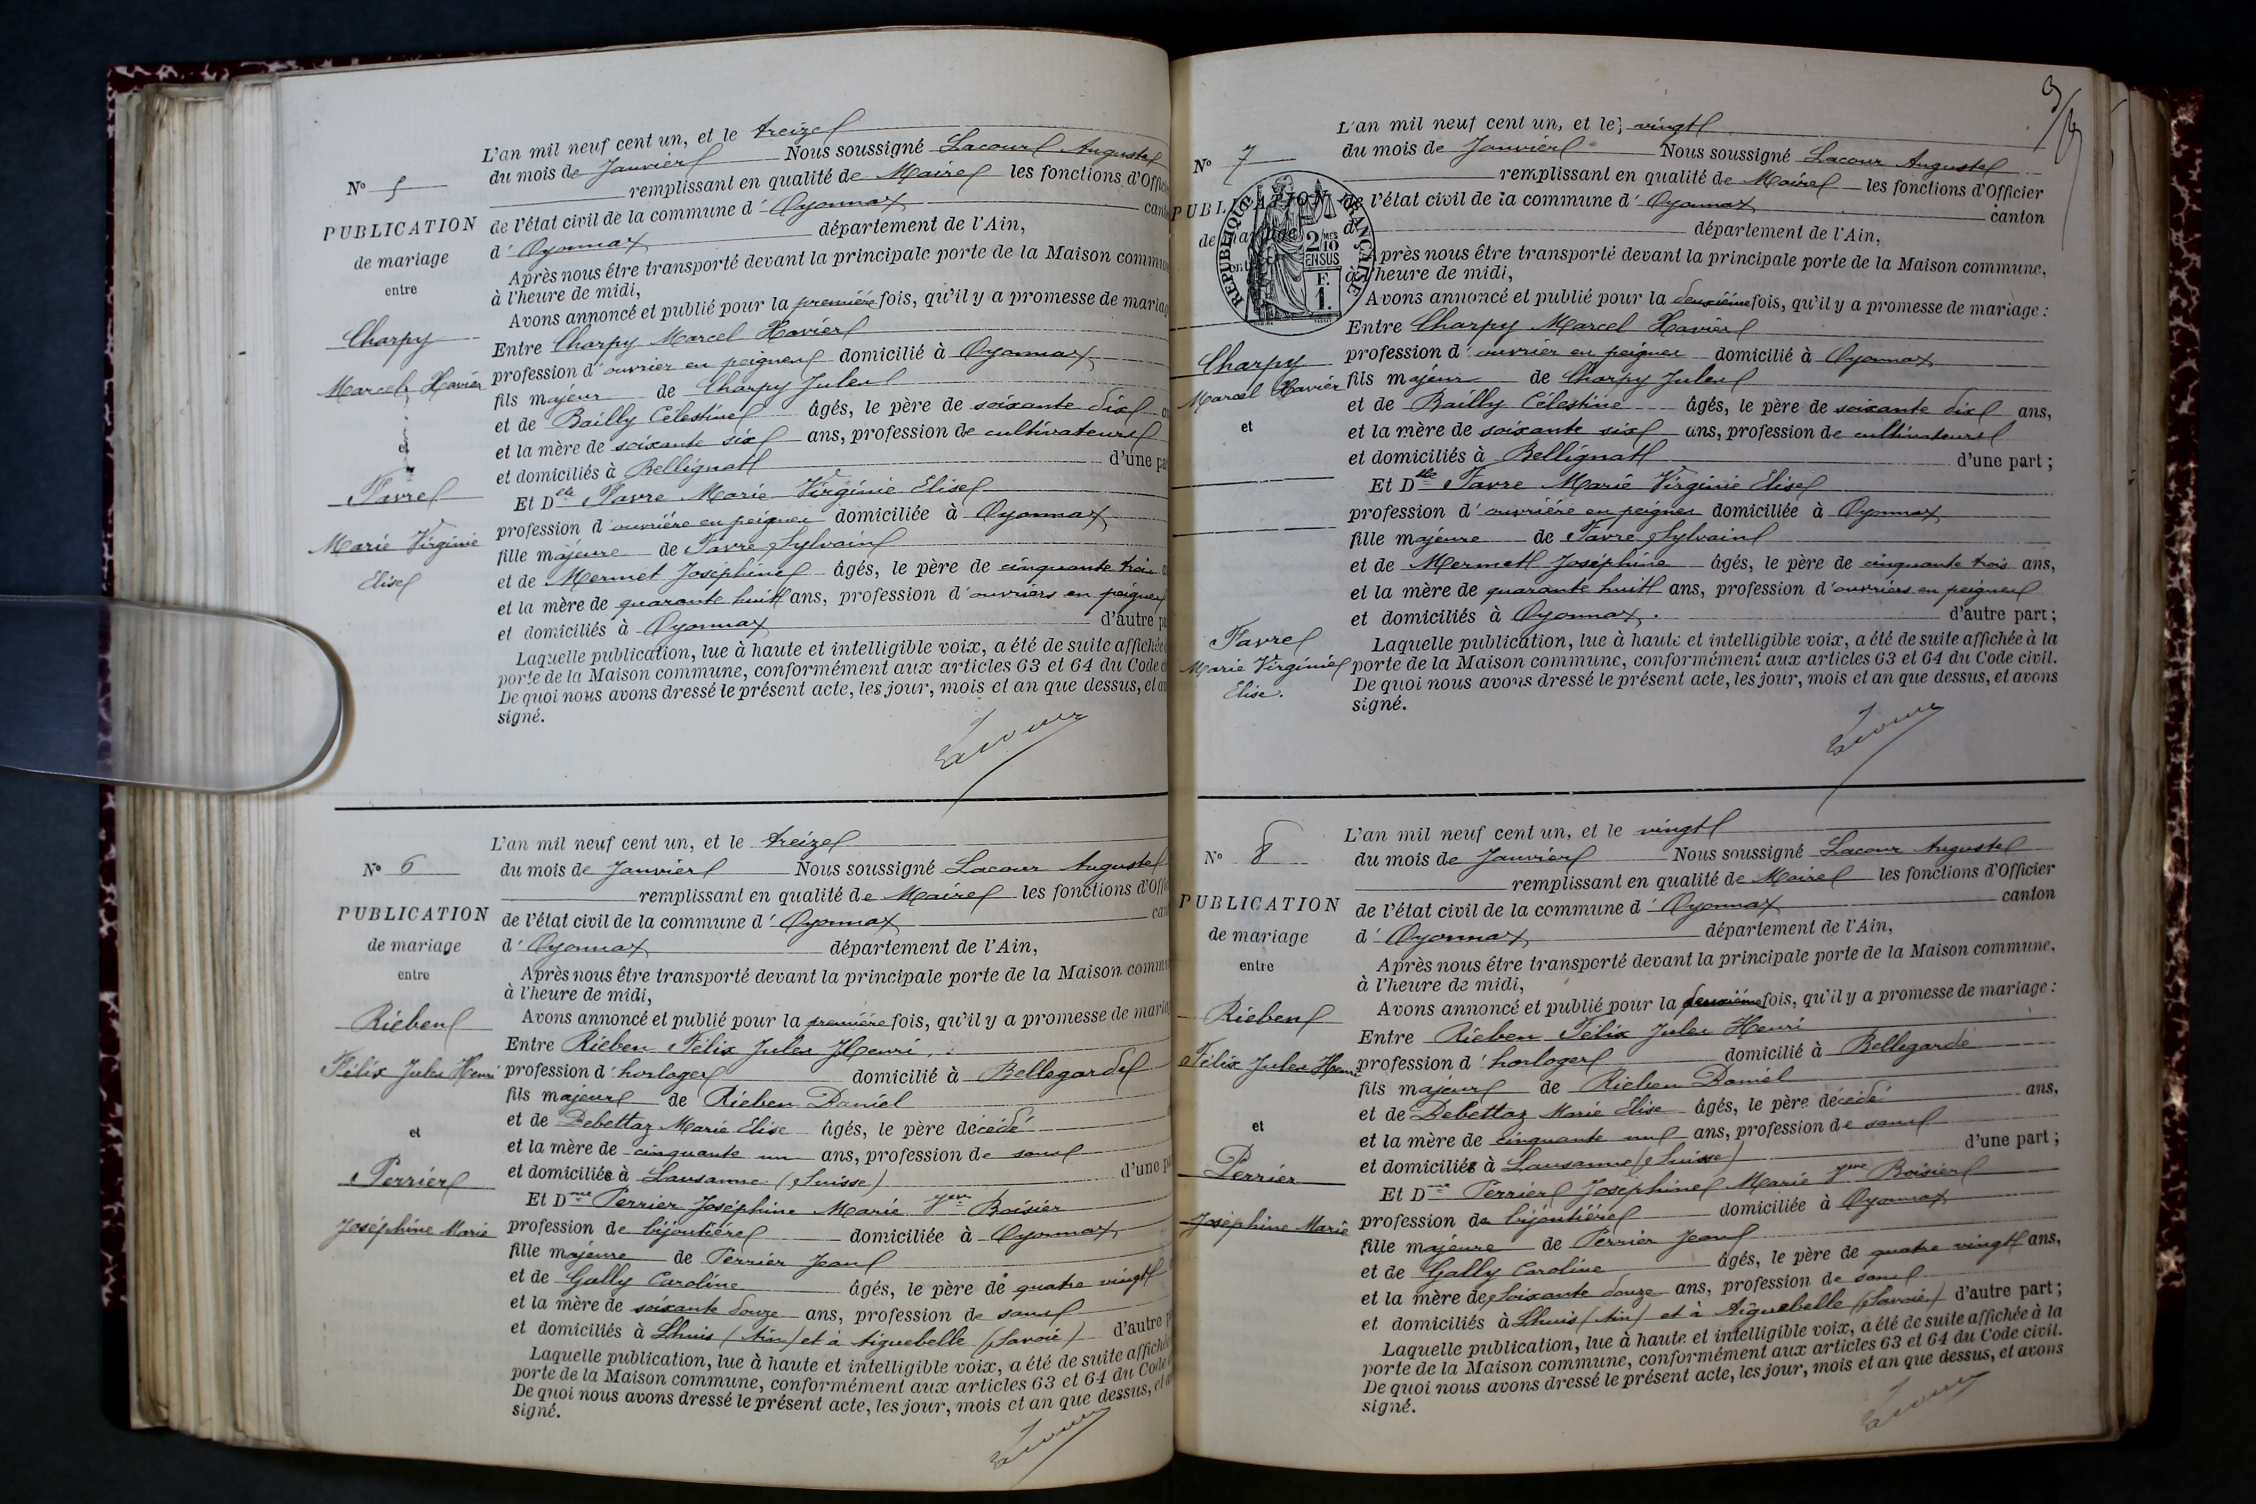 L'an mil neuf cent un, et le treize
du mois de Janvier Nous soussigné Lacour Auguste
remplissant en qualité de Maire les fonctions d'Offic
de l'état civil de la commune d' Oyonnax cant
d' Oyonnax département de l'Ain,
Après nous être transporté devant la principale porte de la Maison commun
à l'heure de midi,
Avons annoncé et publié pour la première fois, qu'il y a promesse de mariag
Entre Charpy Marcel Xavier
profession d' ouvrier en peignes domicilié à Oyonnax
fils majeur de Charpy Jules
et de Bailly Célestine âgés, le père de soixante dix
et la mère de soixante six ans, profession de cultivateurs
et domiciliés à Bellignat d'une pa
Et Dlle Favre Marie Virginie Elise
profession d' ouvrière en peignes domiciliée à Oyonnax
fille majeure de Favre Sylvain
et de Mermet Joséphine âgés, le père de cinquante trois
et la mère de quarante huit ans, profession d' ouvriers en peignes
et domiciliés à Oyonnax d'autre pa
Laquelle publication, lue à haute et intelligible voix, a été de suite affichée
porte de la Maison commune, conformément aux articles 63 et 64 du Code c
De quoi nous avons dressé le présent acte, les jour, mois et an que dessus, et av
signé.
Lacour
N° 5
PUBLICATION
de mariage
entre
Charpy
Marcel Xavier
et
Favre
Marie Virginie
Elise
L'an mil neuf cent un, et le treize
du mois de Janvier Nous soussigné Lacour Auguste
remplissant en qualité de Maire les fonctions d'Offic
de l'état civil de la commune d' Oyonnax can
d' Oyonnax département de l'Ain,
Après nous être transporté devant la principale porte de la Maison commu
à l'heure de midi,
Avons annoncé et publié pour la première fois, qu'il y a promesse de maria
Entre Rieben Félix Jules Henri
profession d' horloger domicilié à Bellegarde
fils majeur de Rieben Daniel
et de Debettaz Marie Elise âgés, le père décédé
et la mère de cinquante un ans, profession de sans
et domiciliés à Lausanne (Suisse) d'une pa
Et Dme Perrier Joséphine Marie Vve Boisier
profession de bijoutière domiciliée à Oyonnax
fille majeure de Perrier Jean
et de Gally Caroline âgés, le père de quatre vingt
et la mère de soixante douze ans, profession de sans
et domiciliés à Lhuis (Ain) et à Aiguebelle (Savoie) d'autre p
Laquelle publication, lue à haute et intelligible voix, a été de suite affiché
porte de la Maison commune, conformément aux articles 63 et 64 du Code
De quoi nous avons dressé le présent acte, les jour, mois et an que dessus, et a
signé.
Lacour
N° 6
PUBLICATION
de mariage
entre
Rieben
Félix Jules Henri
et
Perrier
Joséphine Marie
L'an mil neuf cent un, et le vingt
du mois de Janvier Nous soussigné Lacour Auguste
remplissant en qualité de Maire les fonctions d'Officier
de l'état civil de la commune d' Oyonnax canton
d' département de l'Ain,
Après nous être transporté devant la principale porte de la Maison commune,
à l'heure de midi,
Avons annoncé et publié pour la deuxième fois, qu'il y a promesse de mariage :
Entre Charpy Marcel Xavier
profession d' ouvrier en peignes domicilié à Oyonnax
fils majeur de Charpy Jules
et de Bailly Célestine âgés, le père de soixante dix ans,
et la mère de soixante six ans, profession de cultivateurs
et domiciliés à Bellignat d'une part ;
Et Dlle Favre Marie Virginie Elise
profession d' ouvrière en peignes domiciliée à Oyonnax
fille majeure de Favre Sylvain
et de Mermet Joséphine âgés, le père de cinquante trois ans,
et la mère de quarante huit ans, profession d' ouvriers en peignes
et domiciliés à Oyonnax. d'autre part ;
Laquelle publication, lue à haute et intelligible voix, a été de suite affichée à la
porte de la Maison commune, conformément aux articles 63 et 64 du Code civil.
De quoi nous avons dressé le présent acte, les jour, mois et an que dessus, et avons
signé.
Lacour
N° 7
PUBLICATION
de mariage
RÉPUBLIQUE FRANÇAISE
2/10 MES
EN SUS
F.
1.
Charpy
Marcel Xavier
et
Favre
Marie Virginie
Elise.
L'an mil neuf cent un, et le vingt
du mois de Janvier Nous soussigné Lacour Auguste
remplissant en qualité de Maire les fonctions d'Officier
de l'état civil de la commune d' Oyonnax canton
d' Oyonnax département de l'Ain,
Après nous être transporté devant la principale porte de la Maison commune,
à l'heure de midi,
Avons annoncé et publié pour la deuxième fois, qu'il y a promesse de mariage :
Entre Rieben Félix Jules Henri
profession d' horloger domicilié à Bellegarde
fils majeur de Rieben Daniel
et de Debettaz Marie Elise âgés, le père décédé ans,
et la mère de cinquante un ans, profession de sans
et domiciliés à Lausanne (Suisse) d'une part ;
Et Dme Perrier Joséphine Marie Vve Boisier
profession de bijoutière domiciliée à Oyonnax
fille majeure de Perrier Jean
et de Gally Caroline âgés, le père de quatre vingt ans,
et la mère de Soixante douze ans, profession de sans
et domiciliés à Lhuis (Ain) et à Aiguebelle (Savoie) d'autre part ;
Laquelle publication, lue à haute et intelligible voix, a été de suite affichée à la
porte de la Maison commune, conformément aux articles 63 et 64 du Code civil.
De quoi nous avons dressé le présent acte, les jour, mois et an que dessus, et avons
signé.
Lacour
N° 8
PUBLICATION
de mariage
entre
Rieben
Félix Jules Henri
et
Perrier
Joséphine Marie